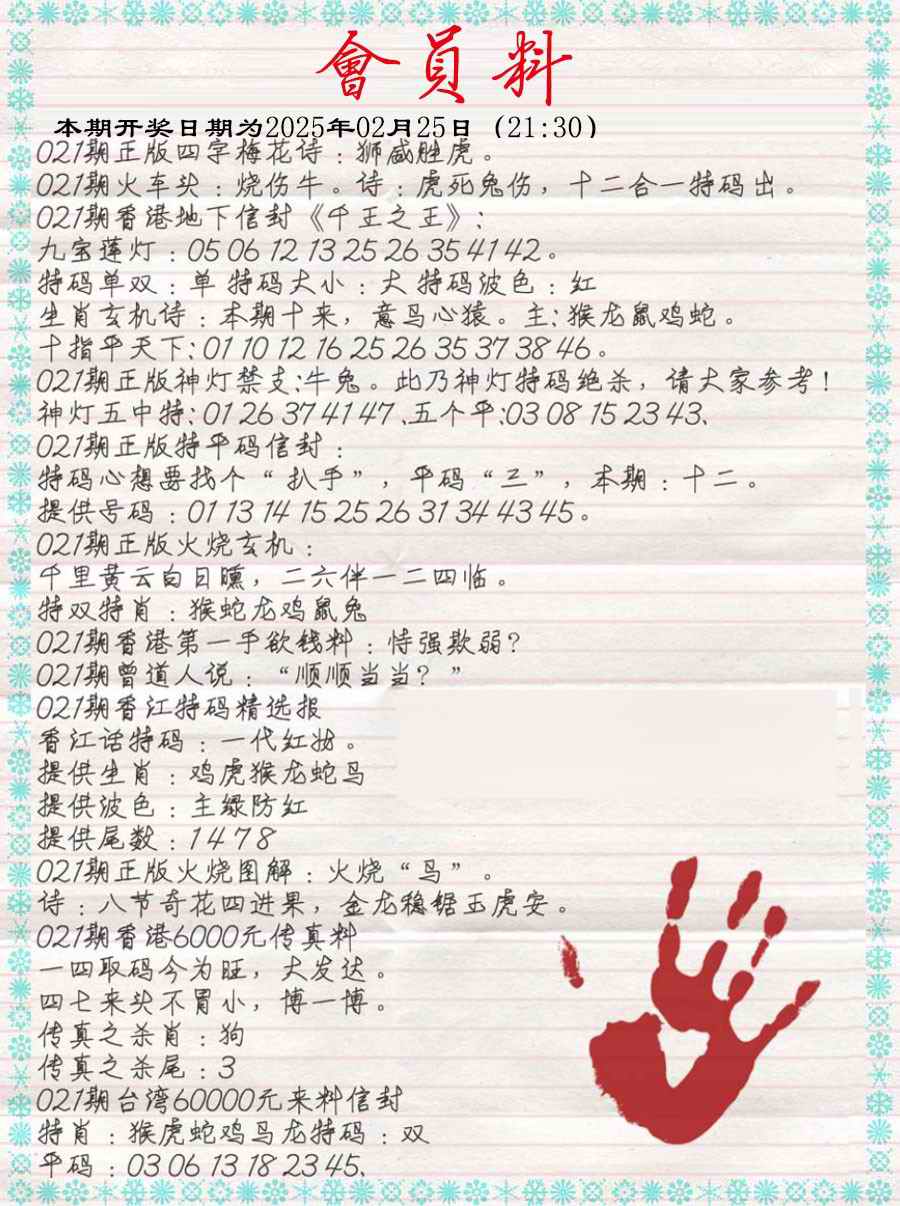 會員料
本期开奖日期为2025年02月25日（21:30）
021期正版四字梅花诗：狮咸胜虎。
021期火车头：烧伤牛。诗：虎死兔伤，十二合一特码出。
021期香港地下信封《千王之王》：
九宝莲灯：05 06 12 13 25 26 35 41 42。
特码单双：单 特码大小：大 特码波色：红
生肖玄机诗：本期十来，意鸟心猿。主：猴龙鼠鸡蛇。
十指平天下：01 10 12 16 25 26 35 37 38 46。
021期正版神灯禁支：牛兔。此乃神灯特码绝杀，请大家参考！
神灯五中特：01 26 37 41 47、五个平：03 08 15 23 43、
021期正版特平码信封：
特码心想要找个“扒手”，平码“三”，本期：十二。
提供号码：01 13 14 15 25 26 31 34 43 45。
021期正版火烧玄机：
千里黄云白日曛，二六伴一二四临。
特双特肖：猴蛇龙鸡鼠兔
021期香港第一手欲钱料：恃强欺弱？
021期曾道人说：“顺顺当当？”
021期香江特码精选报
香江话特码：一代红妆。
提供生肖：鸡虎猴龙蛇马
提供波色：主绿防红
提供尾数：1 4 7 8
021期正版火烧图解：火烧“鸟”。
诗：八节奇花四进果，金龙稳锯玉虎安。
021期香港6000元传真料
一四取码今为旺，大发达。
四七来头不冒小，博一博。
传真之杀肖：狗
传真之杀尾：3
021期台湾60000元来料信封
特肖：猴虎蛇鸡马龙特码：双
平码：03 06 13 18 23 45、